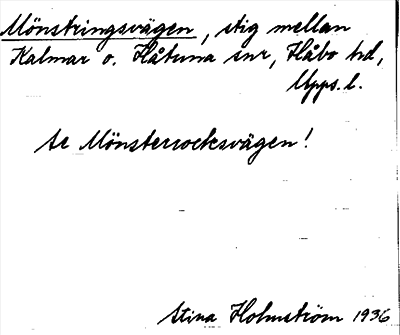 Mönstringsvägen, stig mellan
Kalmar o. Håtuna snr, Håbo hd,
Upps. l.
se Mönsterrocksvägen!
Stina Holmström 1936